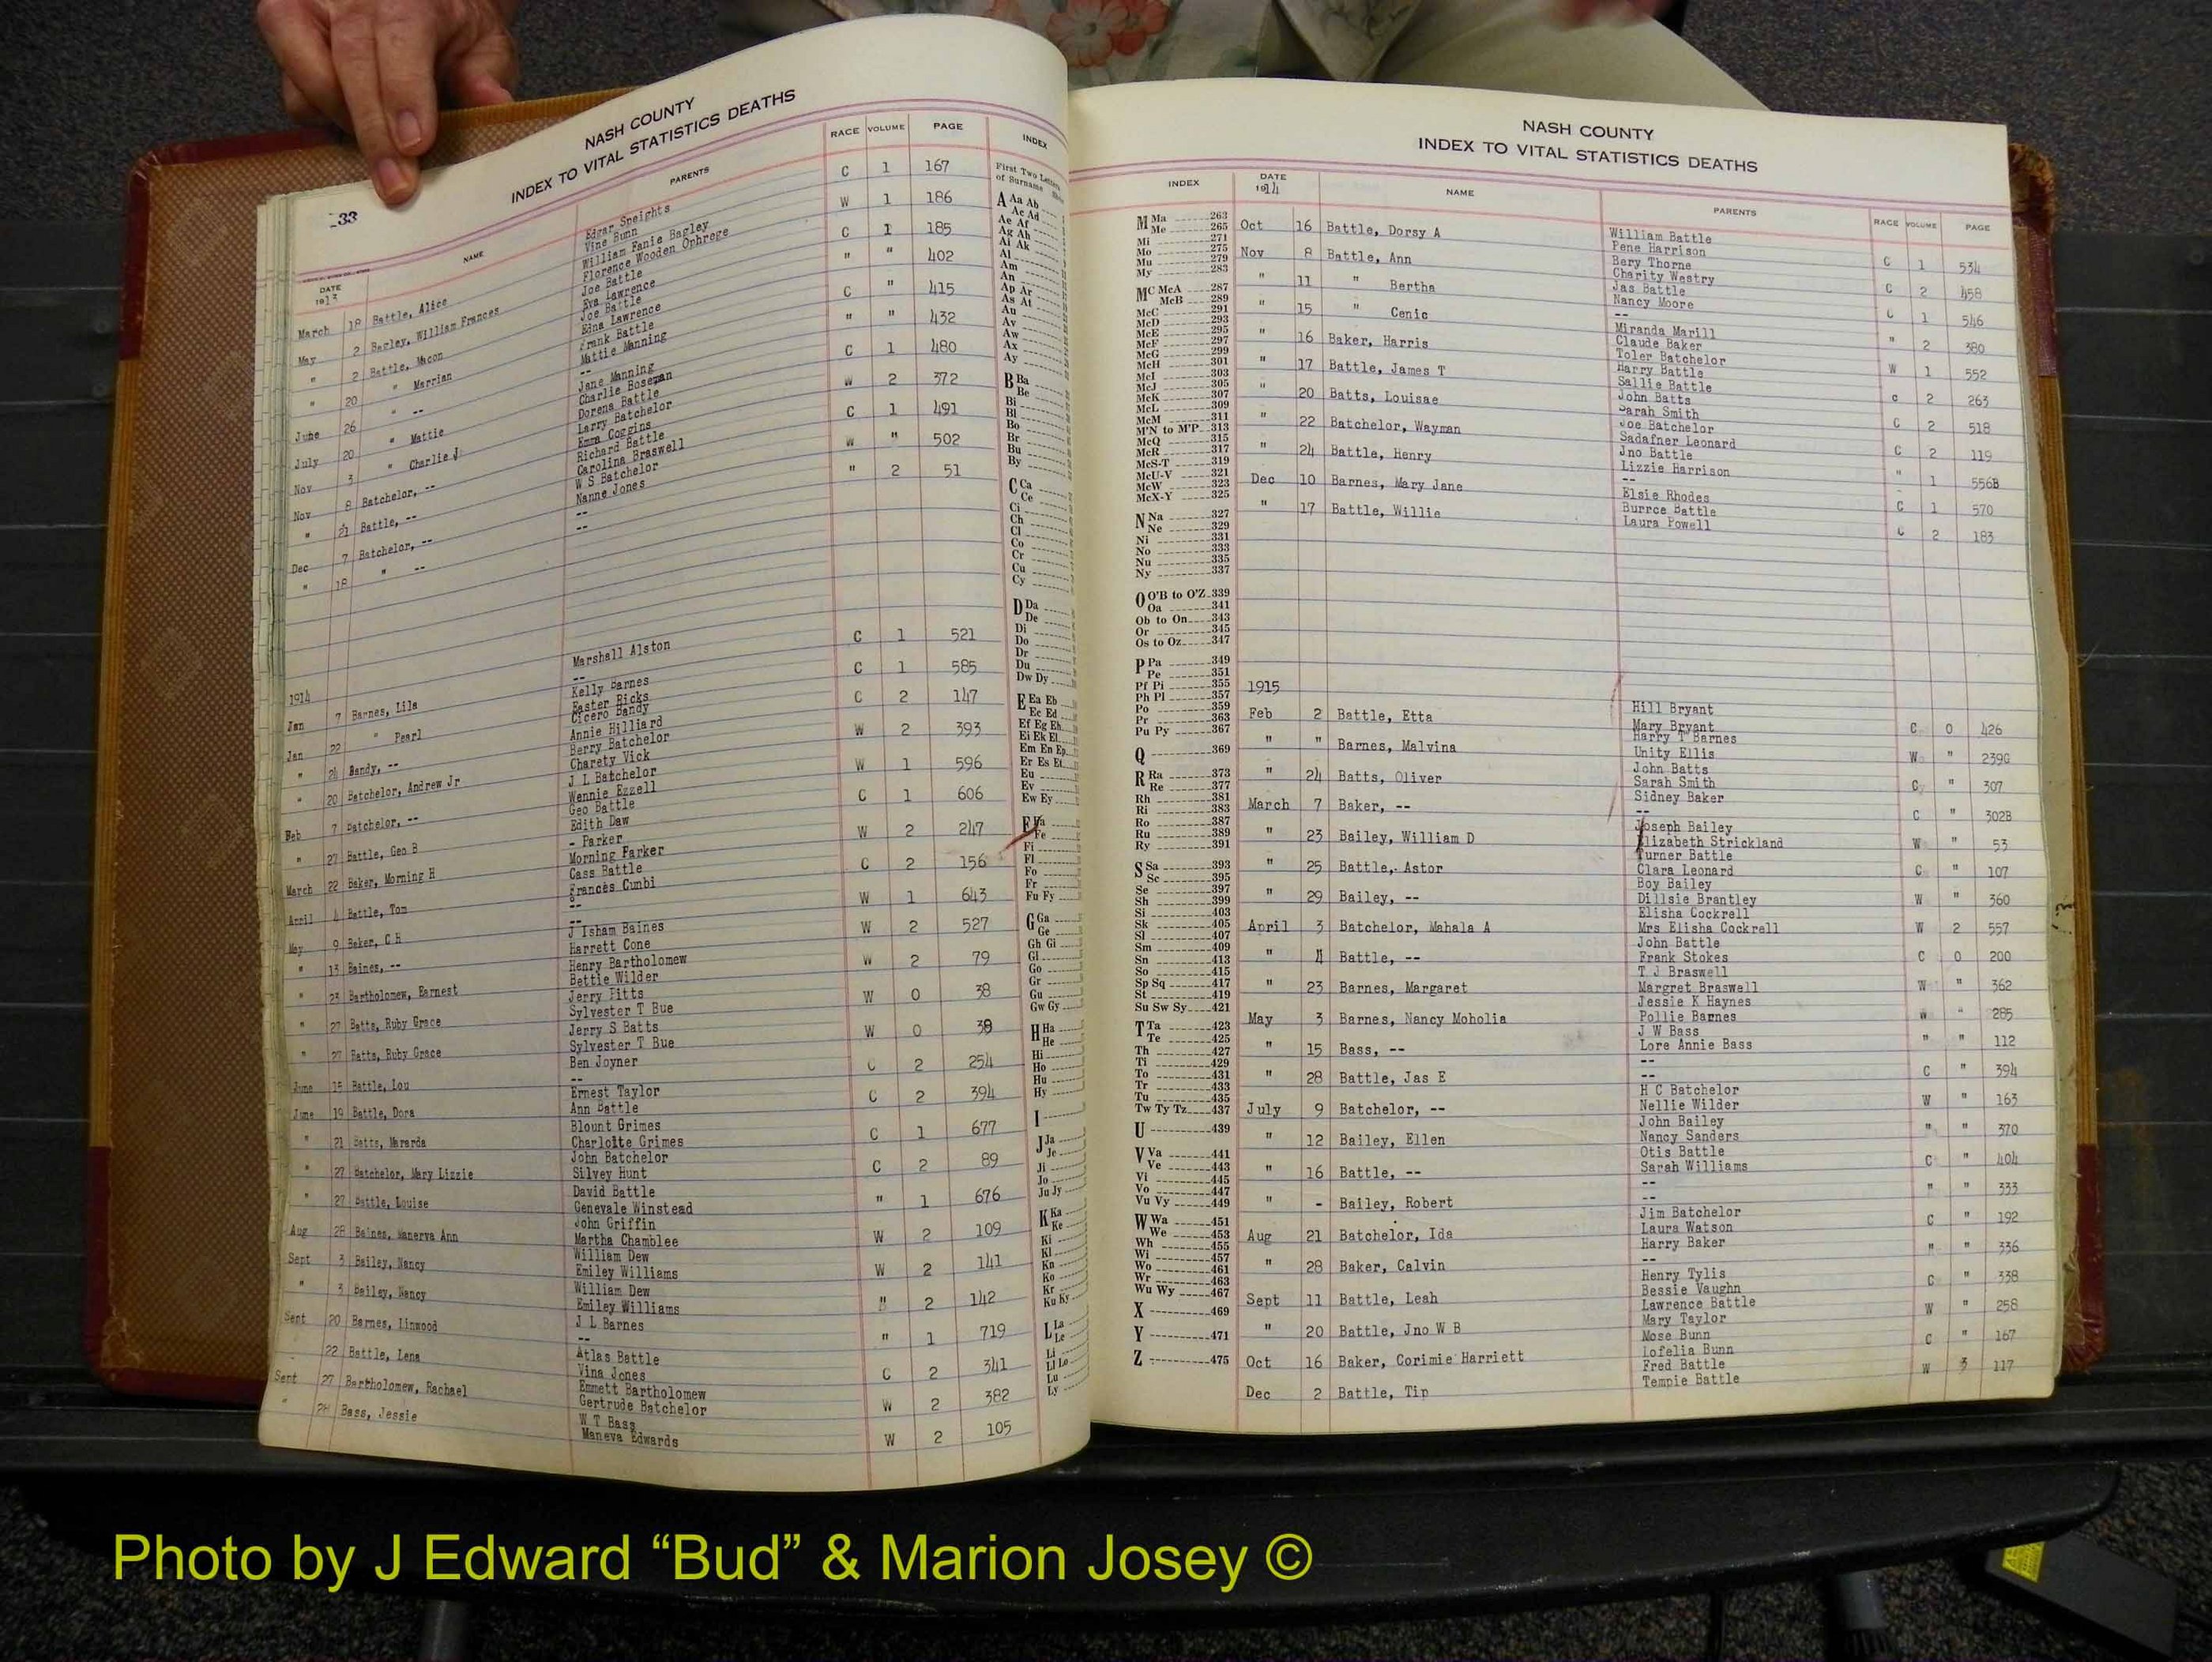 33
NASH COUNTY
INDEX TO VITAL STATISTICS DEATHS
DATE 1913 NAME PARENTS RACE VOLUME PAGE INDEX
March 18 Battle, Alice Edgar Speights C 1 167
Vine Bunn
May 2 Bagley, William Frances William Fanie Bagley W 1 186
Florence Wooden Ophrege
" 2 Battle, Macon Joe Battle C 1 185
Eva Lawrence
" 20 " Marrian Joe Battle " " 402
Edna Lawrence
June 26 " -- Frank Battle C " 415
Mattie Manning
July 20 " Mattie -- " " 432
Jane Manning
Nov 3 " Charlie J Charlie Boseman C 1 480
Dorena Battle
Nov 8 Batchelor, -- Larry Batchelor W 2 372
Emma Coggins
" 21 Battle, -- Richard Battle C 1 491
Carolina Braswell
Dec 7 Batchelor, -- W S Batchelor W " 502
Nanne Jones
" 18 " -- -- " 2 51
--
1914
Jan 7 Barnes, Lila Marshall Alston C 1 521
--
Jan 22 " Pearl Kelly Barnes C 1 585
Easter Ricks
" 24 Bandy, -- Cicero Bandy C 2 147
Annie Hilliard
" 20 Batchelor, Andrew Jr Berry Batchelor W 2 393
Charety Vick
Feb 7 Batchelor, -- J L Batchelor W 1 596
Wennie Ezzell
" 27 Battle, Geo B Geo Battle C 1 606
Edith Daw
March 22 Baker, Morning H - Parker W 2 247
Morning Parker
April 4 Battle, Tom Cass Battle C 2 156
Frances Cunbi
May 9 Baker, C H -- W 1 643
--
" 13 Baines, -- J Isham Baines W 2 527
Harrett Cone
" 23 Bartholomew, Earnest Henry Bartholomew W 2 79
Bettie Wilder
" 27 Batts, Ruby Grace Jerry Pitts W 0 38
Sylvester T Bue
" 27 Batts, Ruby Grace Jerry S Batts W 0 38
Sylvester T Bue
June 15 Battle, Lou Ben Joyner C 2 254
--
June 19 Battle, Dora Ernest Taylor C 2 394
Ann Battle
" 21 Batts, Mararda Blount Grimes C 1 677
Charloite Grimes
" 27 Batchelor, Mary Lizzie John Batchelor C 2 89
Silvey Hunt
" 27 Battle, Louise David Battle " 1 676
Genevale Winstead
Aug 28 Baines, Manerva Ann John Griffin W 2 109
Martha Chamblee
Sept 3 Bailey, Nancy William Dew W 2 141
Emiley Williams
" 3 Bailey, Nancy William Dew " 2 142
Emiley Williams
Sent 20 Barnes, Linwood J L Barnes " 1 719
--
22 Battle, Lena Atlas Battle C 2 341
Vina Jones
Sent 27 Bartholomew, Rachael Emmett Bartholomew W 2 382
Gertrude Batchelor
" 28 Bass, Jessie W T Bass W 2 105
Maneva Edwards
First Two Letters
of Surname
A Aa Ab
Ac Ad
Ae Af
Ag Ah
Ai Ak
Al
Am
An
Ap Ar
As At
Au
Av
Aw
Ax
Ay
B Ba
Be
Bi
Bl
Bo
Br
Bu
By
C Ca
Ce
Ci
Ch
Cl
Co
Cr
Cu
Cy
D Da
De
Di
Do
Dr
Du
Dw Dy
E Ea Eb
Ec Ed
Ef Eg Eh
Ei Ek El
Em En Ep
Er Es Et
Eu
Ev
Ew Ey
F Fa
Fe
Fi
Fl
Fo
Fr
Fu Fy
G Ga
Ge
Gh Gi
Gl
Go
Gr
Gu
Gw Gy
H Ha
He
Hi
Ho
Hu
Hy
I
J Ja
Je
Ji
Jo
Ju Jy
K Ka
Ke
Ki
Kl
Kn
Ko
Kr
Ku Ky
L La
Le
Li
Ll Lo
Lu
Ly
NASH COUNTY
INDEX TO VITAL STATISTICS DEATHS
INDEX DATE 1914 NAME PARENTS RACE VOLUME PAGE
M Ma 263
Me 265
Mi 271
Mo 275
Mu 279
My 283
MC McA 287
McB 289
McC 291
McD 293
McE 295
McF 297
McG 299
McH 301
McI 303
McJ 305
McK 307
McL 309
McM 311
M'N to M'P 313
McQ 315
McR 317
McS-T 319
McU-V 321
McW 323
McX-Y 325
N Na 327
Ne 329
Ni 331
No 333
Nu 335
Ny 337
O O'B to O'Z 339
Oa 341
Ob to On 343
Or 345
Os to Oz 347
P Pa 349
Pe 351
Pf Pi 355
Ph Pl 357
Po 359
Pr 363
Pu Py 367
Q 369
R Ra 373
Re 377
Rh 381
Ri 383
Ro 387
Ru 389
Ry 391
S Sa 393
Sc 395
Se 397
Sh 399
Si 403
Sk 405
Sl 407
Sm 409
Sn 413
So 415
Sp Sq 417
St 419
Su Sw Sy 421
T Ta 423
Te 425
Th 427
Ti 429
To 431
Tr 433
Tu 435
Tw Ty Tz 437
U 439
V Va 441
Ve 443
Vi 445
Vo 447
Vu Vy 449
W Wa 451
We 453
Wh 455
Wi 457
Wo 461
Wr 463
Wu Wy 467
X 469
Y 471
Z 475
Oct 16 Battle, Dorsy A William Battle C 1 534
Pene Harrison
Nov 8 Battle, Ann Bery Thorne C 2 458
Charity Westry
" 11 " Bertha Jas Battle C 1 546
Nancy Moore
" 15 " Cenic -- " 2 380
Miranda Marill
" 16 Baker, Harris Claude Baker W 1 552
Toler Batchelor
" 17 Battle, James T Harry Battle c 2 263
Sallie Battle
" 20 Batts, Louisae John Batts C 2 518
Sarah Smith
" 22 Batchelor, Wayman Joe Batchelor C 2 119
Sadafner Leonard
" 24 Battle, Henry Jno Battle " 1 556B
Lizzie Harrison
Dec 10 Barnes, Mary Jane -- C 1 570
Elsie Rhodes
" 17 Battle, Willie Burrce Battle C 2 183
Laura Powell
1915
Feb 2 Battle, Etta Hill Bryant C 0 426
Mary Bryant
" " Barnes, Malvina Harry T Barnes W " 239G
Unity Ellis
" 24 Batts, Oliver John Batts C " 307
Sarah Smith
March 7 Baker, -- Sidney Baker C " 302B
--
" 23 Bailey, William D Joseph Bailey W " 53
Elizabeth Strickland
" 25 Battle, Astor Turner Battle C " 107
Clara Leonard
" 29 Bailey, -- Boy Bailey W " 360
Dillsie Brantley
April 3 Batchelor, Mahala A Elisha Cockrell W 2 557
Mrs Elisha Cockrell
" 4 Battle, -- John Battle C 0 200
Frank Stokes
" 23 Barnes, Margaret T J Braswell W " 362
Margret Braswell
May 3 Barnes, Nancy Moholia Jessie K Haynes W " 285
Pollie Barnes
" 15 Bass, -- J W Bass " " 112
Lore Annie Bass
" 28 Battle, Jas E -- C " 394
--
July 9 Batchelor, -- H C Batchelor W " 163
Nellie Wilder
" 12 Bailey, Ellen John Bailey " " 370
Nancy Sanders
" 16 Battle, -- Otis Battle C " 404
Sarah Williams
" - Bailey, Robert -- " " 333
--
Aug 21 Batchelor, Ida Jim Batchelor C " 192
Laura Watson
" 28 Baker, Calvin Harry Baker " " 336
--
Sept 11 Battle, Leah Henry Tylis C " 338
Bessie Vaughn
" 20 Battle, Jno W B Lawrence Battle W " 258
Mary Taylor
Oct 16 Baker, Corimie Harriett Mose Bunn C " 167
Lofelia Bunn
Dec 2 Battle, Tip Fred Battle W 3 117
Tempie Battle
Photo by J Edward “Bud” & Marion Josey ©